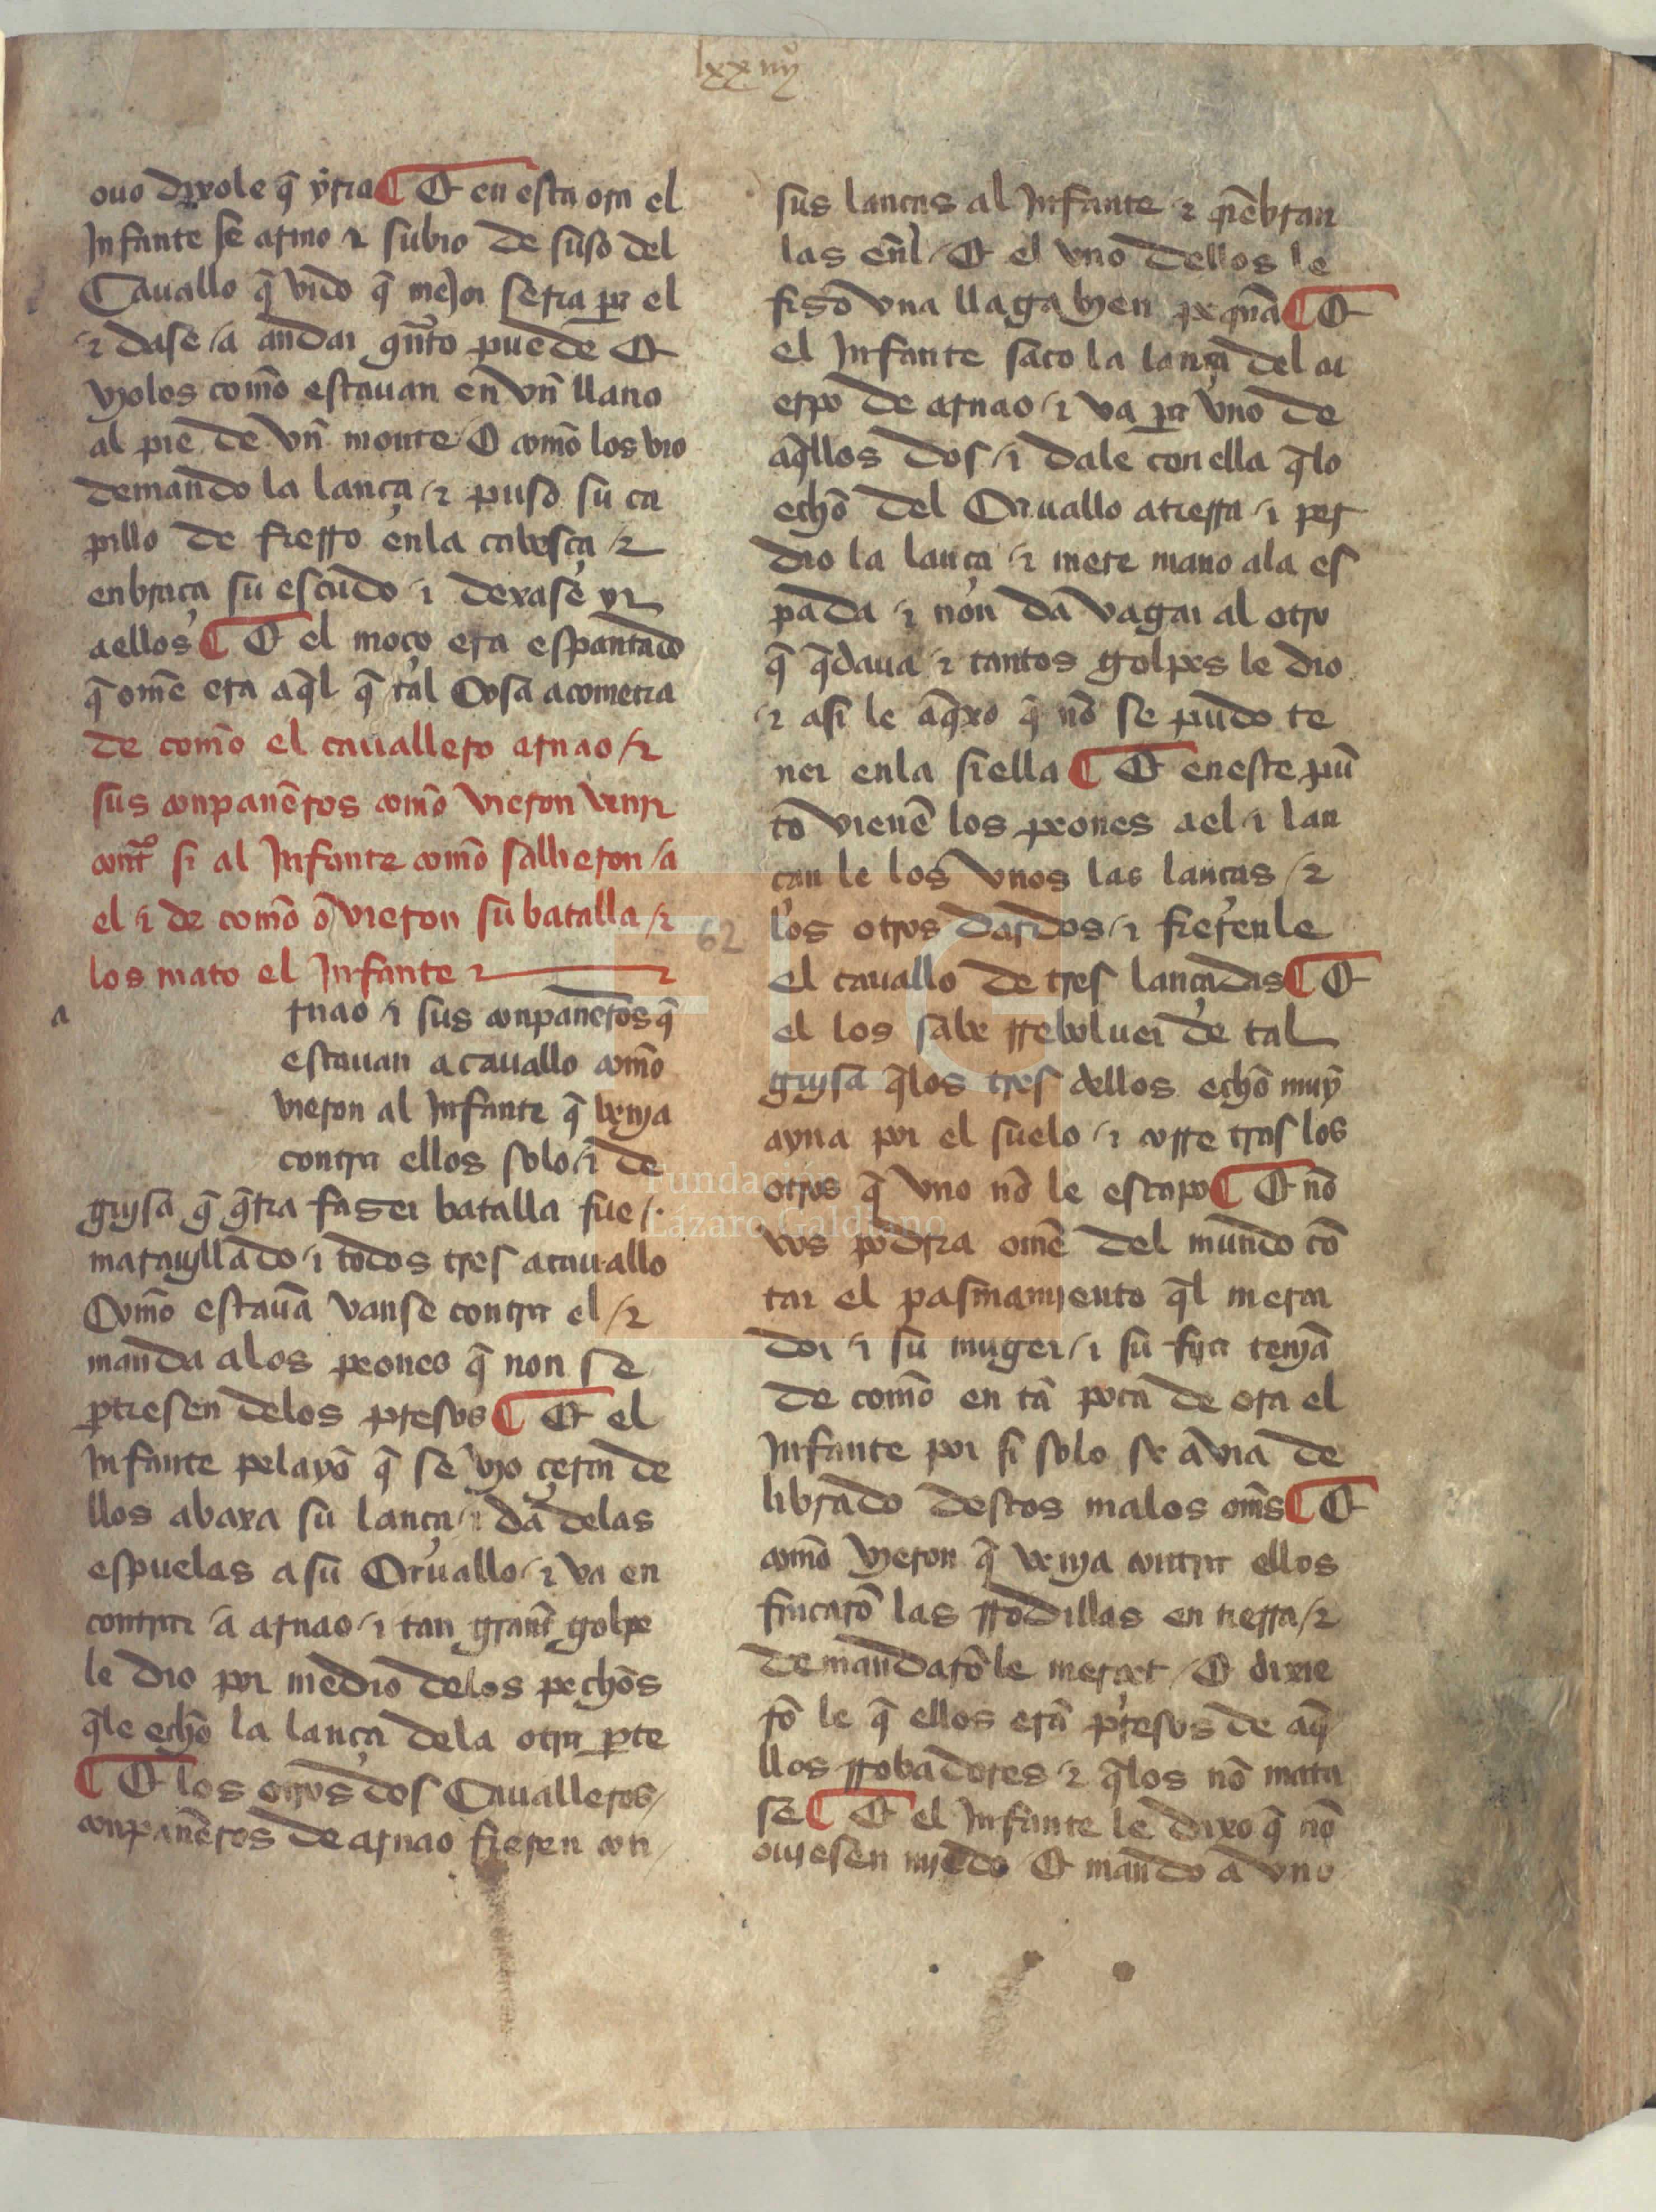 lxxiiij
ouo dixole q̃ yria ¶ Et en esta ora el
Infante se armo ⁊ subio de suso del
Cauallo q̃ vido q̃ mejor seria pa el
⁊ dase a andar qñto puede Et
vyolos com̃o estauan en vn̄ llano
al pie de vn̄ monte E com̃o los vio
demando la lança ⁊ puso su ca
pillo de fierro enla cabesça ⁊
enbraça su escudo ⁊ dexase yr
aellos ¶ Et el moço era espantado
q̃ om̃e era aq̃l q̃ tal Cosa acometia
de com̃o el cauallero arnao ⁊
sus conpan̄eros com̃o vieron venir
contᵒ si al Infante com̃o sallieron a
el ⁊ de com̃o ouieron su batalla ⁊
los mato el Infante ⁊
a
rnao ⁊ sus conpan̄eros q̃
estauan acauallo com̃o
vieron al Infante q̃ venja
contra ellos solo ⁊ de
gujsa q̃ q̃ria faser batalla fue
marauyllado ⁊ todos tres acauallo
Com̃o estauã vanse contra el ⁊
manda alos peones q̃ non se
ptiesen delos presos ¶ Et el
Infante pelayo q̃ se vyo çerca de
llos abaxa su lança ⁊ da delas
espuelas asu Cauallo ⁊ va en
contra a arnao ⁊ tan grant golpe
le dio por medio delos pechos
q̃le echo la lança dela otra pte
¶ Et los otros dos Caualleros
conpan̄eros de arnao fieren con
sus lanças al Infante ⁊ q̃iebran
las enl̃ Et el vno dellos le
fiso vna llaga byen peqn̄a ¶ Et
el Infante saco la lança del cu
erpo de arnao ⁊ va pa vno de
aq̃llos dos ⁊ dale con ella q̃lo
echo del Cauallo atierra ⁊ per
dio la lança ⁊ mete mano ala es
pada ⁊ non da vagar al otro
q̃ q̃daua ⁊ tantos golpes le dio
⁊ asi le aq̃xo q̃ nõ se pudo te
ner enla siella ¶ Et eneste pũ
to vienẽ los peones ael ⁊ lan
çan le los vnos las lanças ⁊
62
los otros dardos ⁊ fierenle
el cauallo de tres lançadas ¶ Et
el los sabe rreboluer de tal
gujsa q̃los tres dellos echo muy
ayna por el suelo ⁊ corre tras los
otros q̃ vno nõ le escapo ¶ Et nõ
vos podria om̃e del mundo cõ
tar el pasmamjento q̃l merca
dor ⁊ su muger ⁊ su fija tenjã
de com̃o en tã poca de ora el
Infante por si solo se avia de
librado destos malos om̃s ¶ Et
com̃o vyeron q̃ venja contra ellos
fincarõ las rrodillas en tierra ⁊
demandarõle merçet E dixie
rõ le q̃ ellos erã presos de aq̃
llos rrobadores ⁊ q̃los nõ mata
se ¶ Et el Infante le dixo q̃ nõ
oujesen mjedo Et mando a vno
Fundación
Lázaro Galdiano